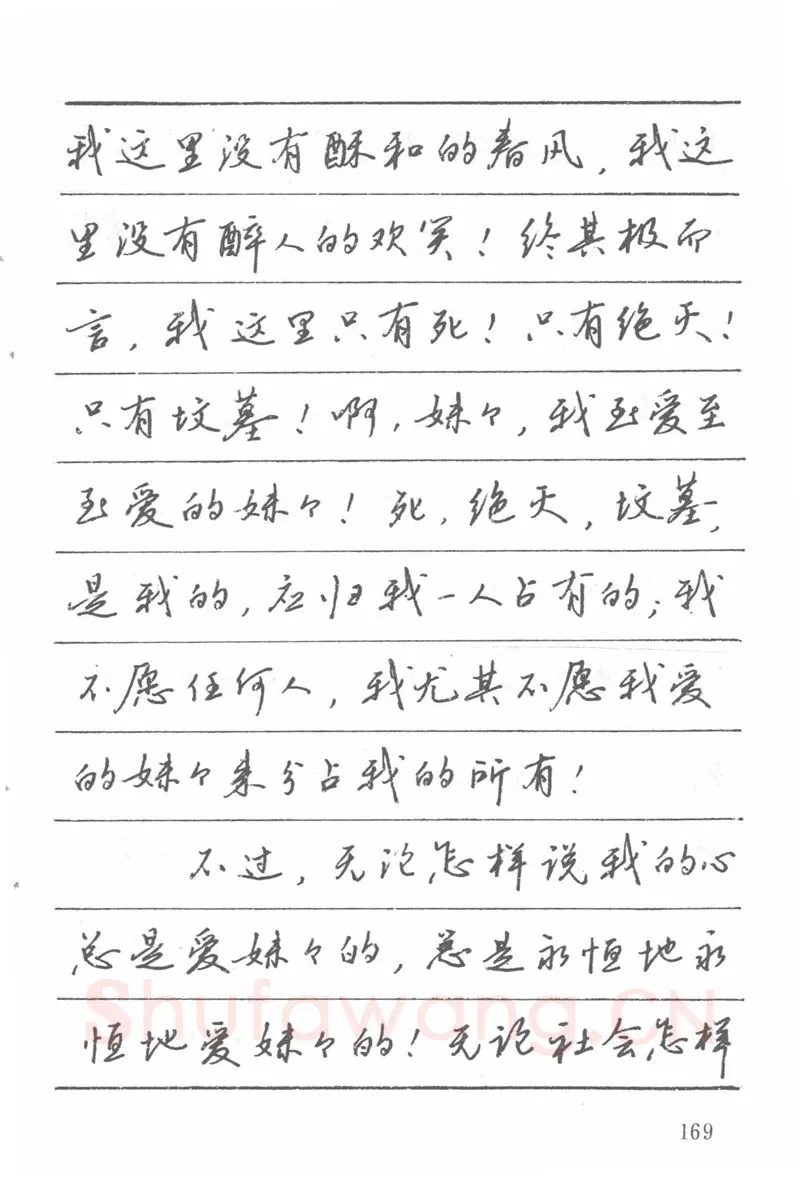 我这里没有酥和的春风，我这
里没有醉人的欢笑！终其极而
言，我这里只有死！只有绝灭！
只有坟墓！啊，妹々，我至爱至
至爱的妹々！死，绝灭，坟墓，
是我的，应归我一人占有的；我
不愿任何人，我尤其不愿我爱
的妹々来分占我的所有！
不过，无论怎样说我的心
总是爱妹々的，总是永恒地永
恒地爱妹々的！无论社会怎样
Shufawang.CN
169